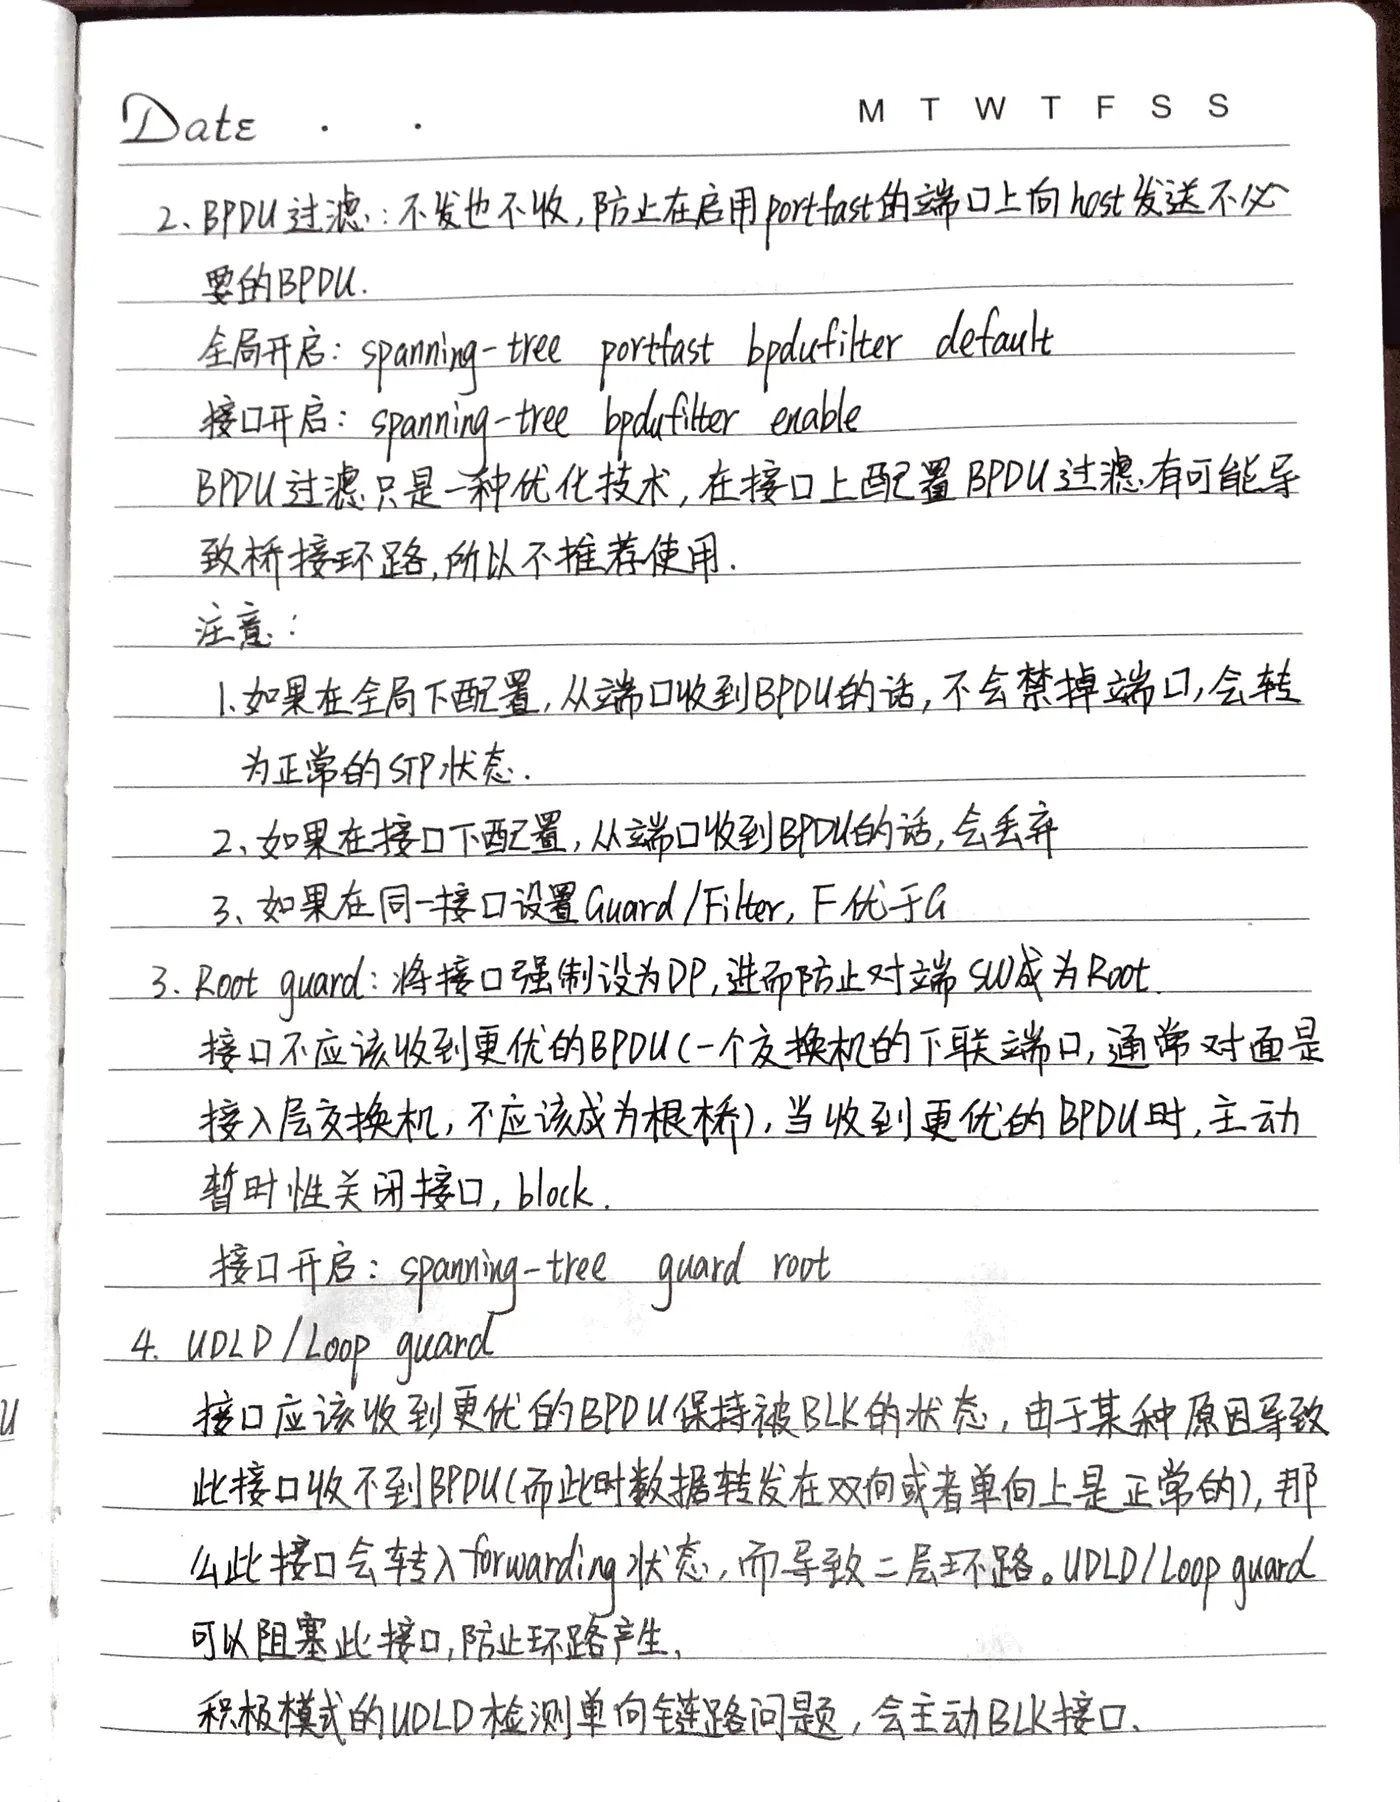 Date . .
M T W T F S S
2、BPDU过滤：不发也不收，防止在启用portfast的端口上向host发送不必
要的BPDU.
全局开启：spanning-tree portfast bpdufilter default
接口开启：spanning-tree bpdufilter enable
BPDU过滤只是一种优化技术，在接口上配置BPDU过滤有可能导
致桥接环路，所以不推荐使用.
注意：
1.如果在全局下配置，从端口收到BPDU的话，不会禁掉端口，会转
为正常的STP状态.
2、如果在接口下配置，从端口收到BPDU的话，会丢弃
3、如果在同一接口设置Guard/Filter，F优于G
3. Root guard：将接口强制设为DP，进而防止对端SW成为Root.
接口不应该收到更优的BPDU(一个交换机的下联端口，通常对面是
接入层交换机，不应该成为根桥)，当收到更优的BPDU时，主动
暂时性关闭接口，block.
接口开启：spanning-tree guard root
4. UDLD/Loop guard
接口应该收到更优的BPDU保持被BLK的状态，由于某种原因导致
此接口收不到BPDU(而此时数据转发在双向或者单向上是正常的)，那
么此接口会转入forwarding状态，而导致二层环路。UDLD/Loop guard
可以阻塞此接口，防止环路产生.
积极模式的UDLD检测单向链路问题，会主动BLK接口.
U